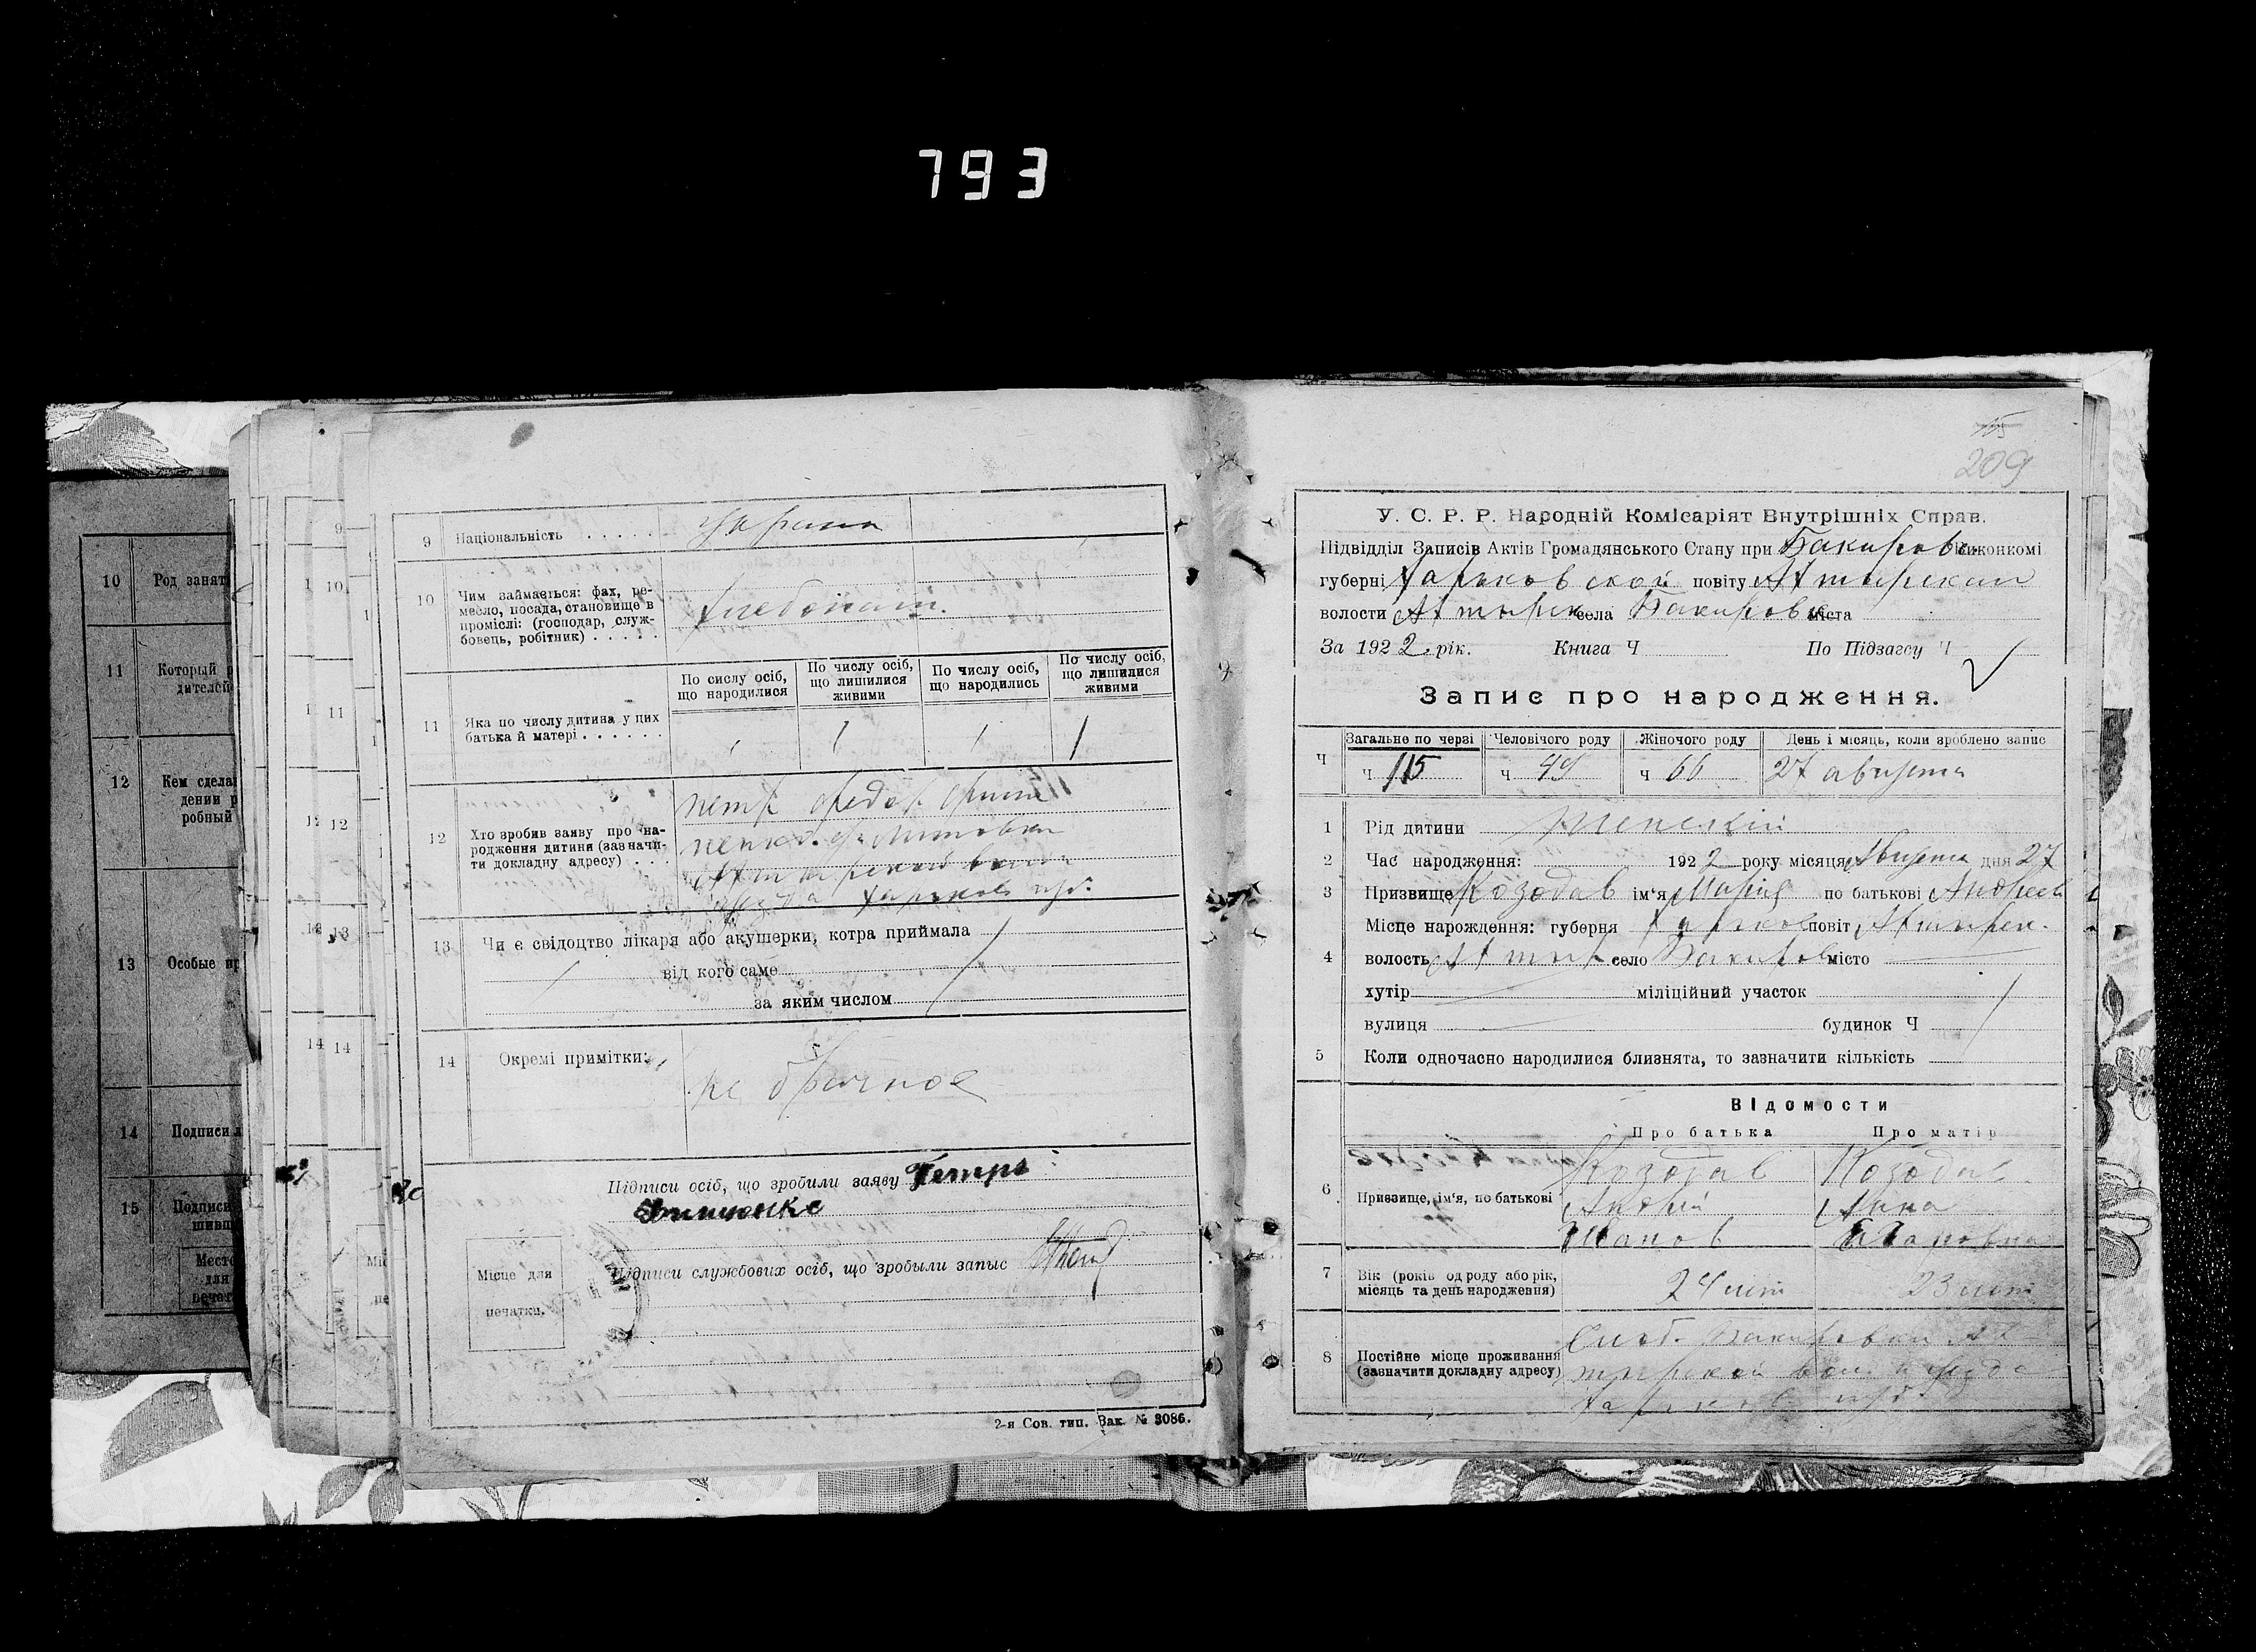 793
10 Род занят
11 Который р
дителей
12 Кем сдела
дении р
робный
13 Особые пр
14 Подписи л
15 Подписи
шивш
Место
для
печат
9
10
11
12
13
14
9 Національність . . . . .
10 Чим займається: фах, ре-
месло, посада, становище в
проміслі: (господар, служ-
бовець, робітник) . . . . .
хлебопаш.
По сислу осіб, що народилися
По числу осіб, що лишилися живими
По числу осіб, що народились
По числу осіб, що лишилися живими
11 Яка по числу дитина у цих
батька й матері . . . . . .
1 1 1 1
12 Хто зробив заяву про на-
родження дитини (зазначи-
ти докладну адресу) . . .
петр федор.
Литовки
Ахтырской
уезда Харьков губ.
13 Чи є свідоцтво лікаря або акушерки, котра приймала
від кого саме
за яким числом
14 Окремі примітки:
не брачное
Підписи осіб, що зробили заяву Петро
Місце для
печатки.
Підписи службових осіб, що зробыли запыс
2-я Сов. тип. Зак. № 3086.
115
209
У. С. Р. Р. Народній Комісаріят Внутрішніх Справ.
Підвідділ Записів Актів Громадянського Стану при Бакировс. виконкомі
губерні Харьковской повіту Ахтырскаи
волости Ахтырск села Бакировка міста
За 1922 рік. Книга Ч По Підзагсу Ч
Запис про народження.
Ч Загальне по черзі Человічого роду Жіночого роду День і місяць, коли зроблено запис
ч 115 ч 49 ч 66 27 августа
1 Рід дитини женский
2 Час народження: 1922 року місяця Августа дня 27
3 Призвище Козодав ім'я Мария по батькові Андреев
4 Місце нарождення: губерня Харьков повіт Ахтырск.
волость Ахтыр село Бакировк місто
хутір міліційний участок
вулиця будинок Ч
5 Коли одночасно народилися близнята, то зазначити кількість
Відомости
Про батька Про матір
6 Призвище, ім'я, по батькові
Козодав Козодав
Андрей Анна
Иванов
7 Вік (років од роду або рік,
місяць та день народження)
24 лет 23 лет
8 Постійне місце проживання
(зазначити докладну адресу)
Слоб. Бакировки Ах-
тырской вол. и уезда
Харьков губ.